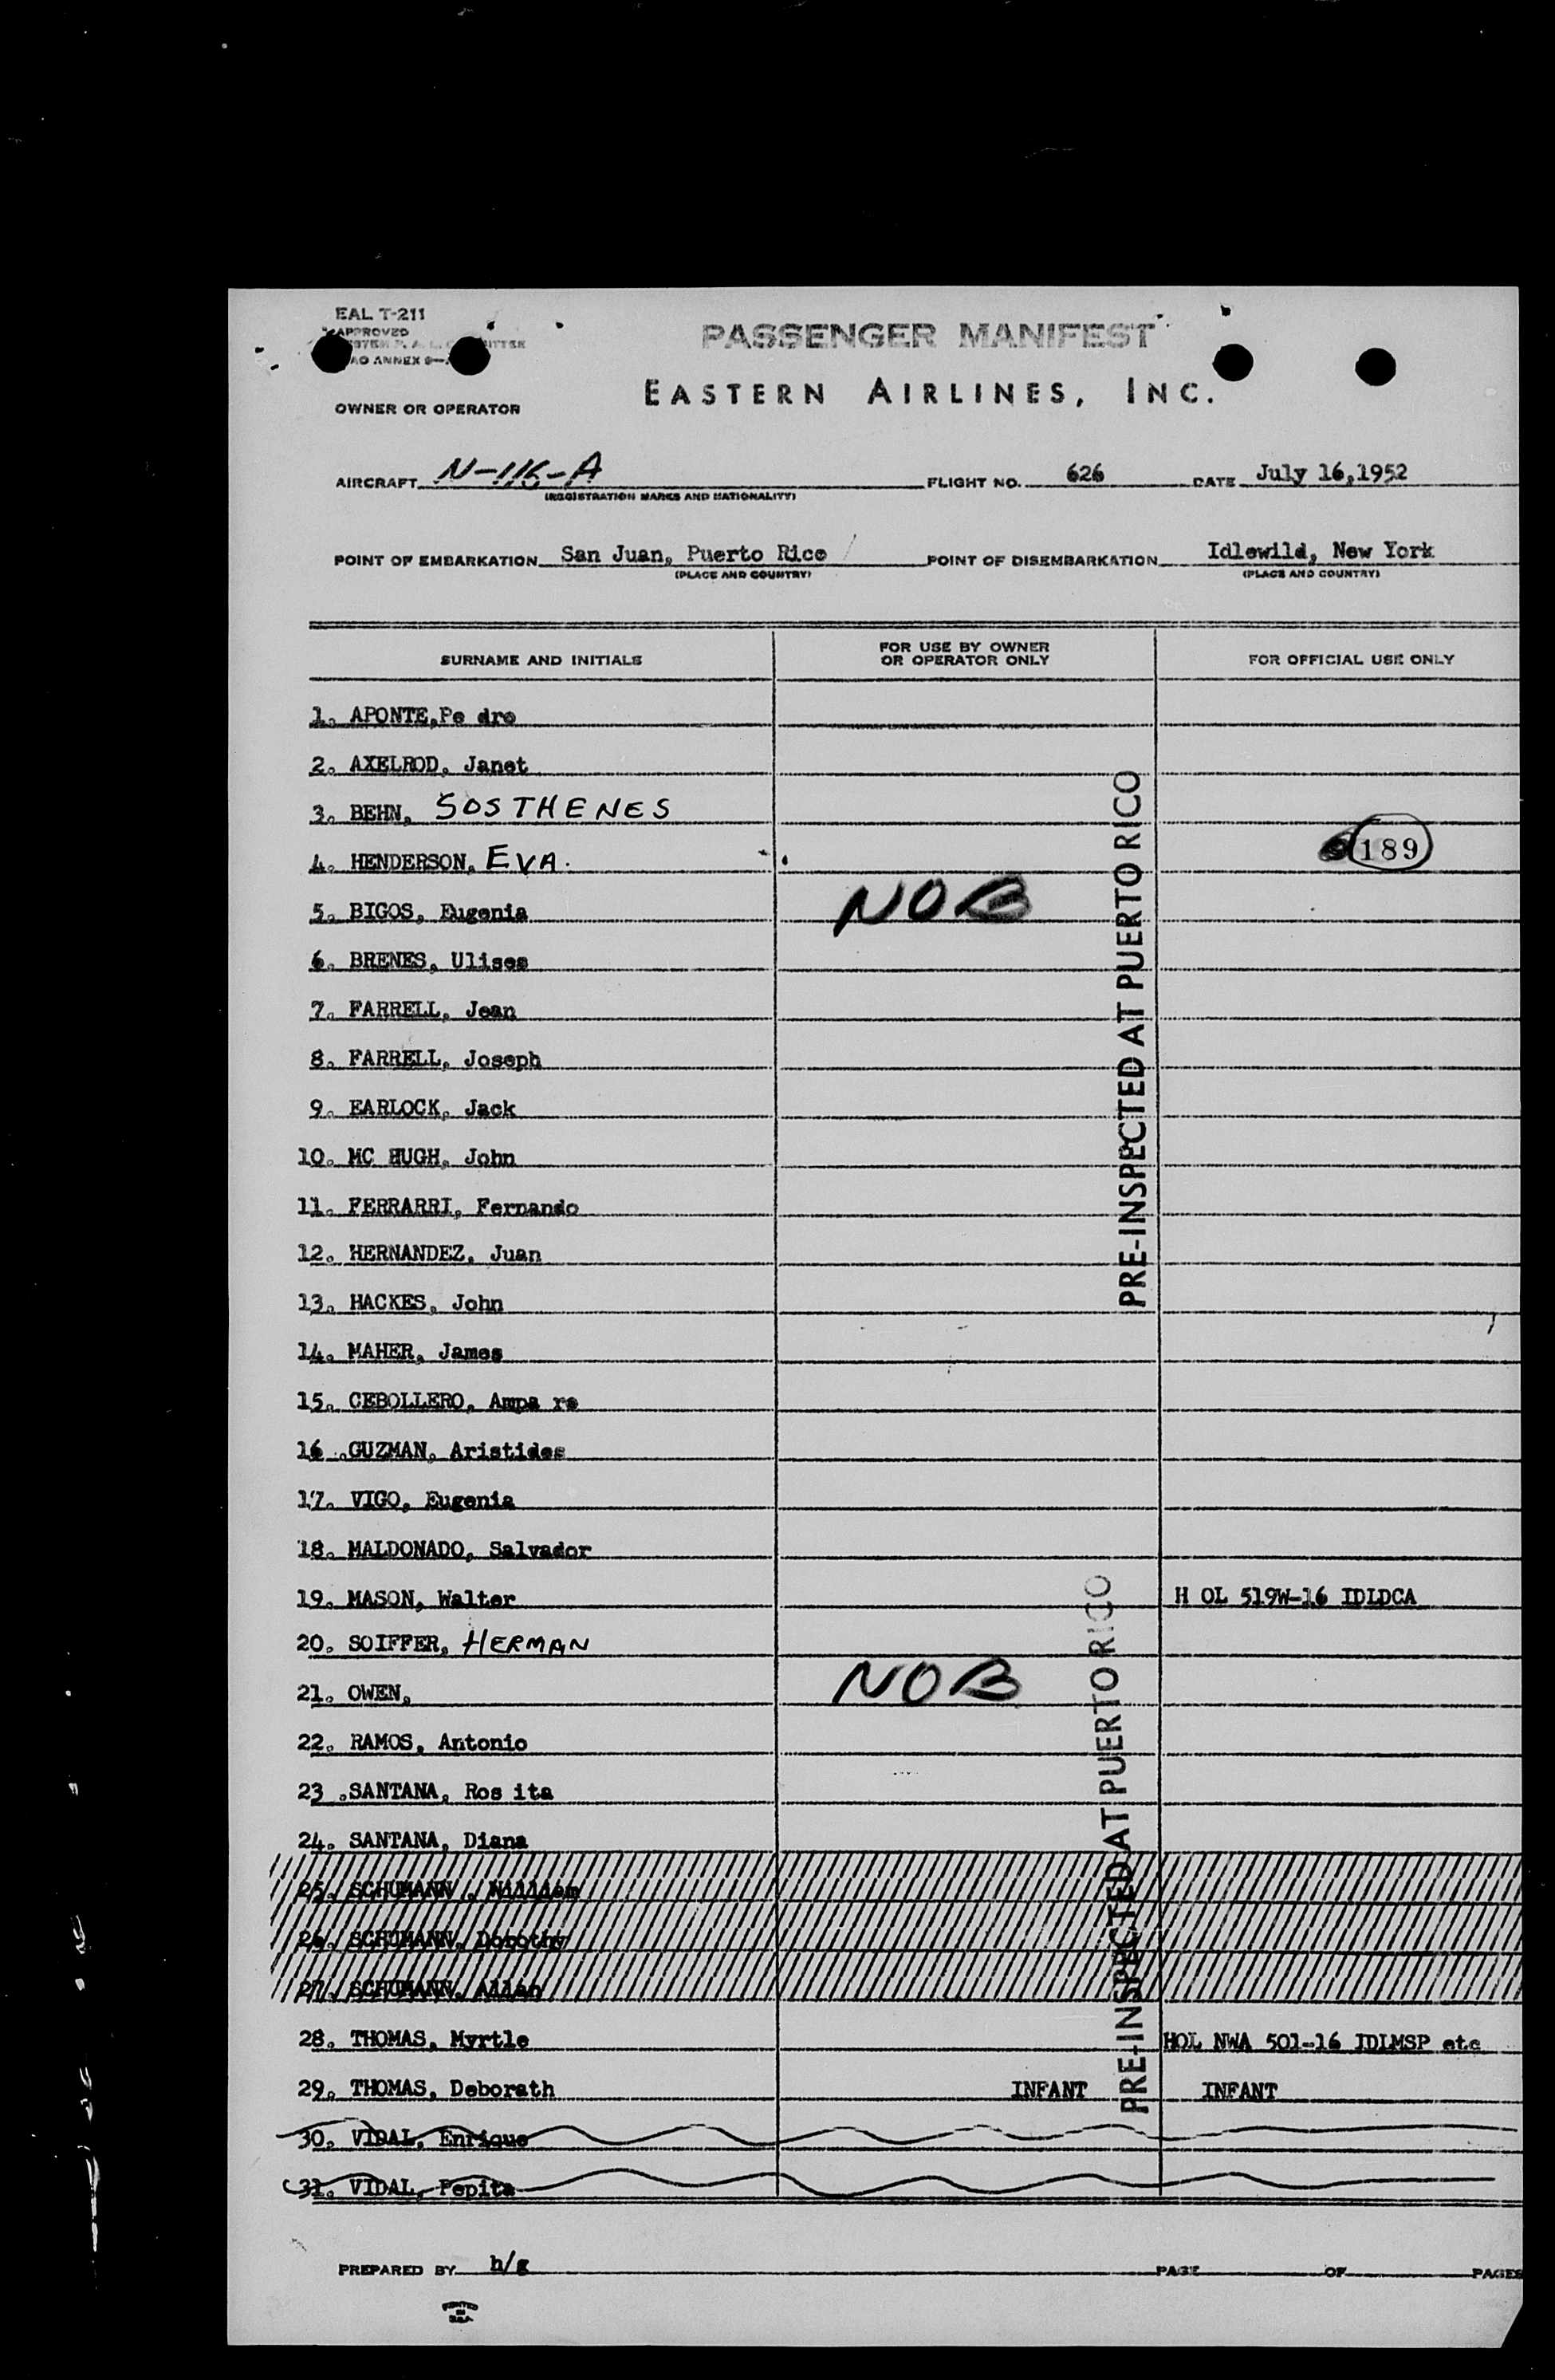 EAL T-211
APPROVED
ANNEX 9-
PASSENGER MANIFEST
EASTERN AIRLINES, INC.
OWNER OR OPERATOR
AIRCRAFT N-116-A FLIGHT NO. 626 DATE July 16,1952
(REGISTRATION MARKS AND NATIONALITY)
POINT OF EMBARKATION San Juan, Puerto Rico POINT OF DISEMBARKATION Idlewild, New York
(PLACE AND COUNTRY) (PLACE AND COUNTRY)
SURNAME AND INITIALS FOR USE BY OWNER OR OPERATOR ONLY FOR OFFICIAL USE ONLY
1. APONTE,Pe dro
2. AXELROD, Janet
3. BEHN, SOSTHENES
4. HENDERSON, EVA. 189
5. BIGOS, Eugenia NOB
6. BRENES, Ulises
7. FARRELL, Jean
8. FARRELL, Joseph
9. EARLOCK, Jack
10. MC HUGH, John
11. FERRARRI, Fernando
12. HERNANDEZ, Juan
13. HACKES, John
PRE-INSPECTED AT PUERTO RICO
14. MAHER, James
15. CEBOLLERO, Ampa ro
16 .GUZMAN, Aristides
17. VIGO, Eugenia
18. MALDONADO, Salvador
19. MASON, Walter H OL 519W-16 IDLDCA
20. SOIFFER, HERMAN
21. OWEN, NOB
22. RAMOS, Antonio
23 .SANTANA, Ros ita
24. SANTANA, Diana
25. SCHUMANN , William
26. SCHUMANN, Dorothy
27. SCHUMANN, Allan
28. THOMAS, Myrtle HOL NWA 501-16 IDLMSP etc
29. THOMAS, Deborath INFANT INFANT
PRE-INSPECTED AT PUERTO RICO
30. VIDAL, Enrique
31. VIDAL, Pepita
PREPARED BY h/g PAGE OF PAGES
PRINTED IN U.S.A.